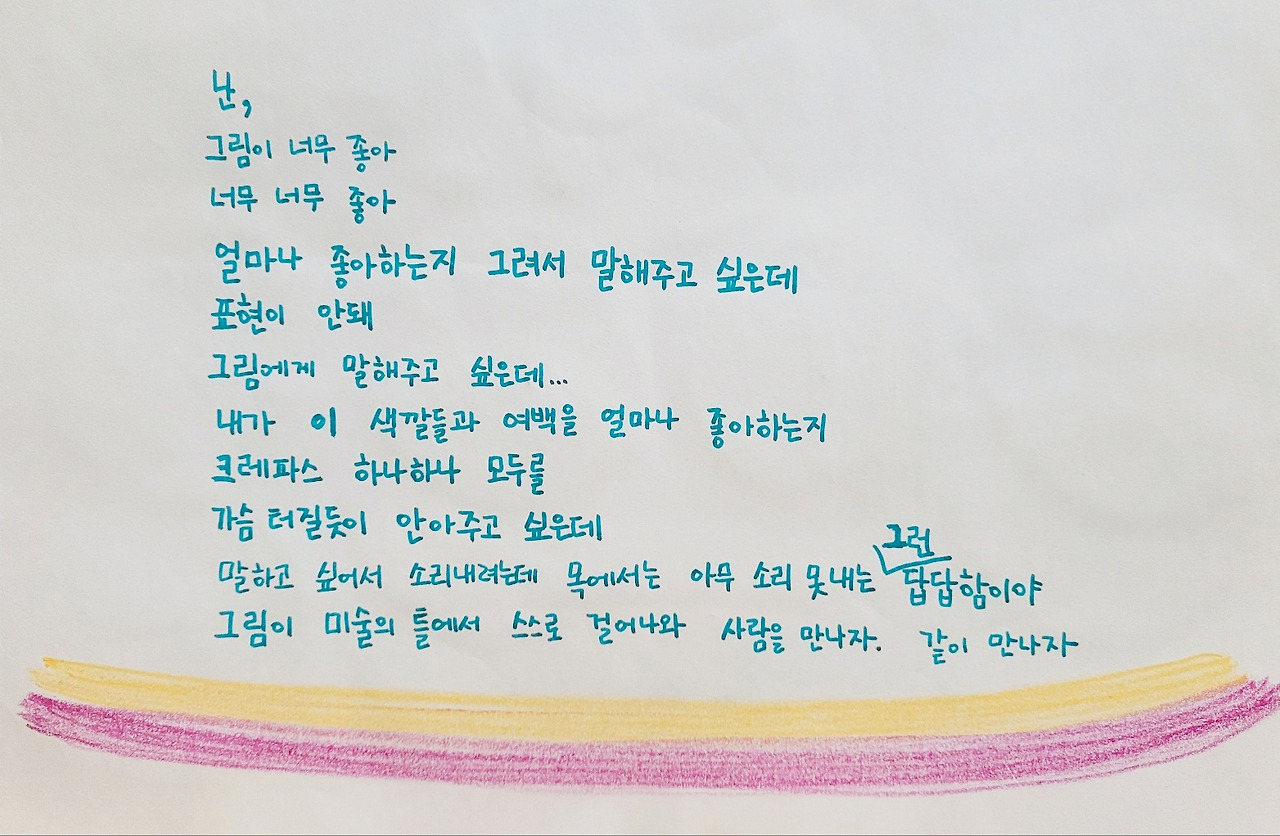 난,
그림이 너무 좋아
너무 너무 좋아
얼마나 좋아하는지 그려서 말해주고 싶은데
표현이 안돼
그림에게 말해주고 싶은데...
내가 이 색깔들과 여백을 얼마나 좋아하는지
크레파스 하나하나 모두를
가슴 터질듯이 안아주고 싶은데
말하고 싶어서 소리내려는데 목에서는 아무 소리 못내는 그런 답답함이야
그림이 미술의 틀에서 스스로 걸어나와 사람을 만나자. 같이 만나자